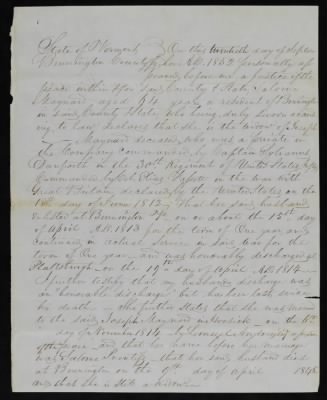 State of Vermont } On this twentieth day of Septem
Bennington County } ber A.D. 1852 personally ap
peared before me a Justice of the
peace within & for said County & State, Salome
Maynard aged 54 years a resident of Bennington
in said County & State, who being duly sworn accord
ing to law, declares that she is the widow of Joseph
Maynard deceased, who was a private in
the Company commanded by Captain
Danforth in the 30th Regiment of United States
Commanded by Col. Elias Fassett in the war with
Great Britain declared by the United States on the
18th day of June 1812. That her said husband
enlisted at Bennington Vt. on or about the 15th
of April A.D. 1813 for the term of One year and
continued in actual service in said war for the
term of One year and was honorably discharged at
Plattsburgh on the 19th day of April A.D. 1814
I further testify that my husband's discharge was
an "honorable discharge" but has been lost since
his death. She further states that she was married
to the said Joseph Maynard in on the 6th
day of November 1814 by
of the peace and that her name before her marriage
was Salome that her said husband died
at Bennington on the 9th day of April 184
and that she is still a widow.